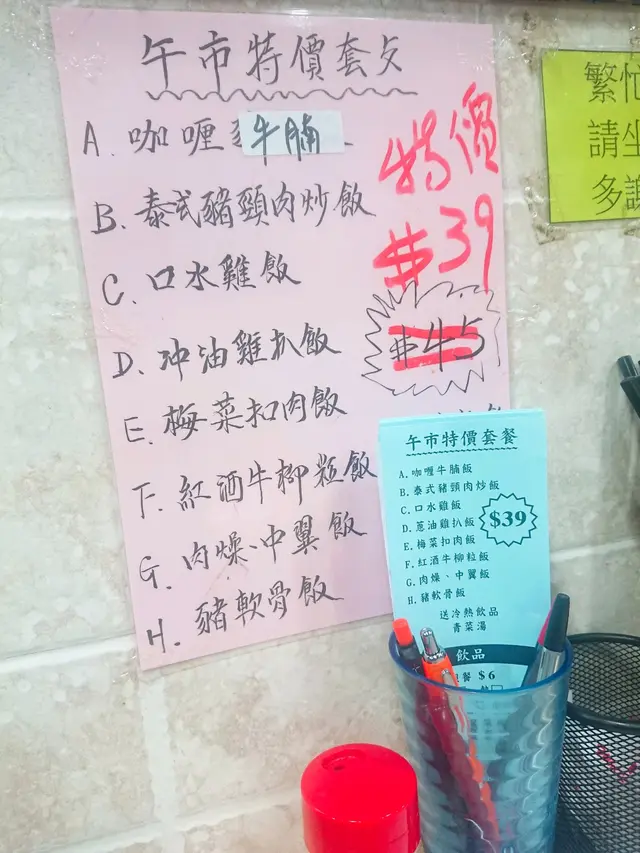 午市特價套歺
A. 咖喱牛腩
B. 泰式豬頸肉炒飯
C. 口水雞飯
D. 冲油雞扒飯
E. 梅菜扣肉飯
F. 紅酒牛柳粒飯
G. 肉燥、中翼飯
H. 豬軟骨飯
特價
$39
$45
繁忙
請坐
多謝
午市特價套餐
A. 咖喱牛腩飯
B. 泰式豬頸肉炒飯
C. 口水雞飯
D. 蔥油雞扒飯
E. 梅菜扣肉飯
F. 紅酒牛柳粒飯
G. 肉燥、中翼飯
H. 豬軟骨飯
$39
送冷熱飲品
青菜湯
飲品
餐 $6